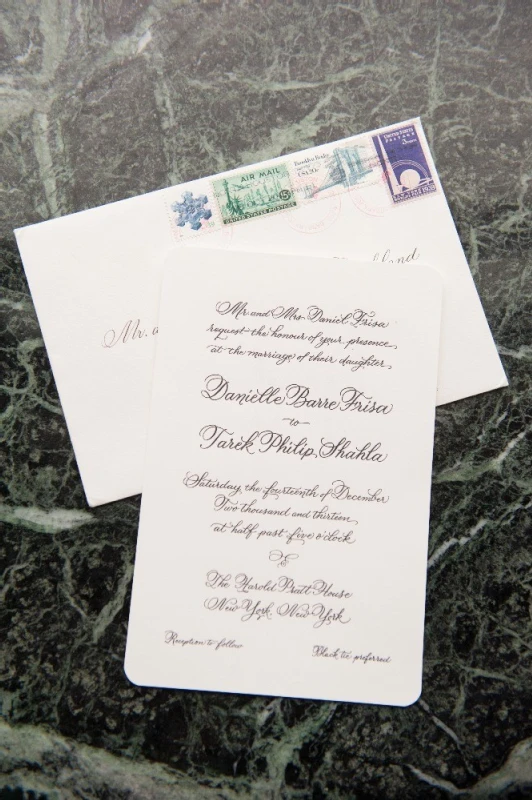 Brooklyn Bridge
AIR MAIL
15¢
UNITED STATES POSTAGE
UNITED STATES
POSTAGE
3 CENTS
Mr. a
Mr. and Mrs. Daniel Frisa
request the honour of your presence
at the marriage of their daughter
Danielle Barre Frisa
to
Tarek Philip Shahla
Saturday, the fourteenth of December
Two thousand and thirteen
at half past five o'clock
The Harold Pratt House
New York, New York
Reception to follow
Black tie preferred